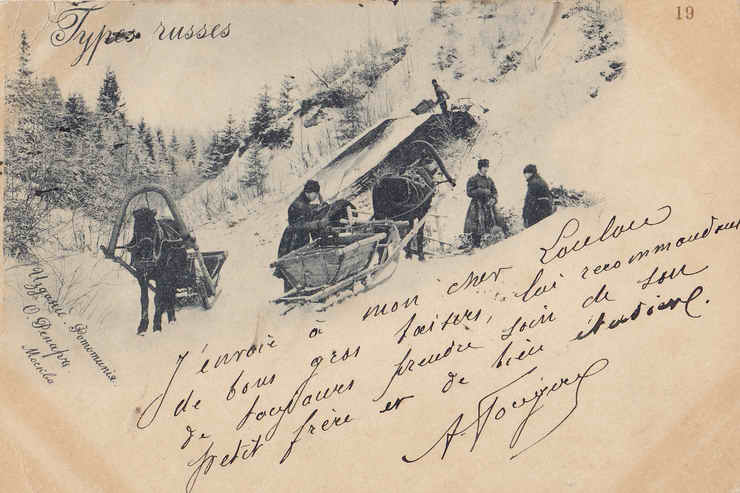 Types russes
19
Изданіе Фототипія
О. Ренаръ
Москва
J'envoie à mon cher Loulou
de bons gros baisers, lui recommandant
de toujours prendre soin de son
petit frère et de bien étudier.
A.